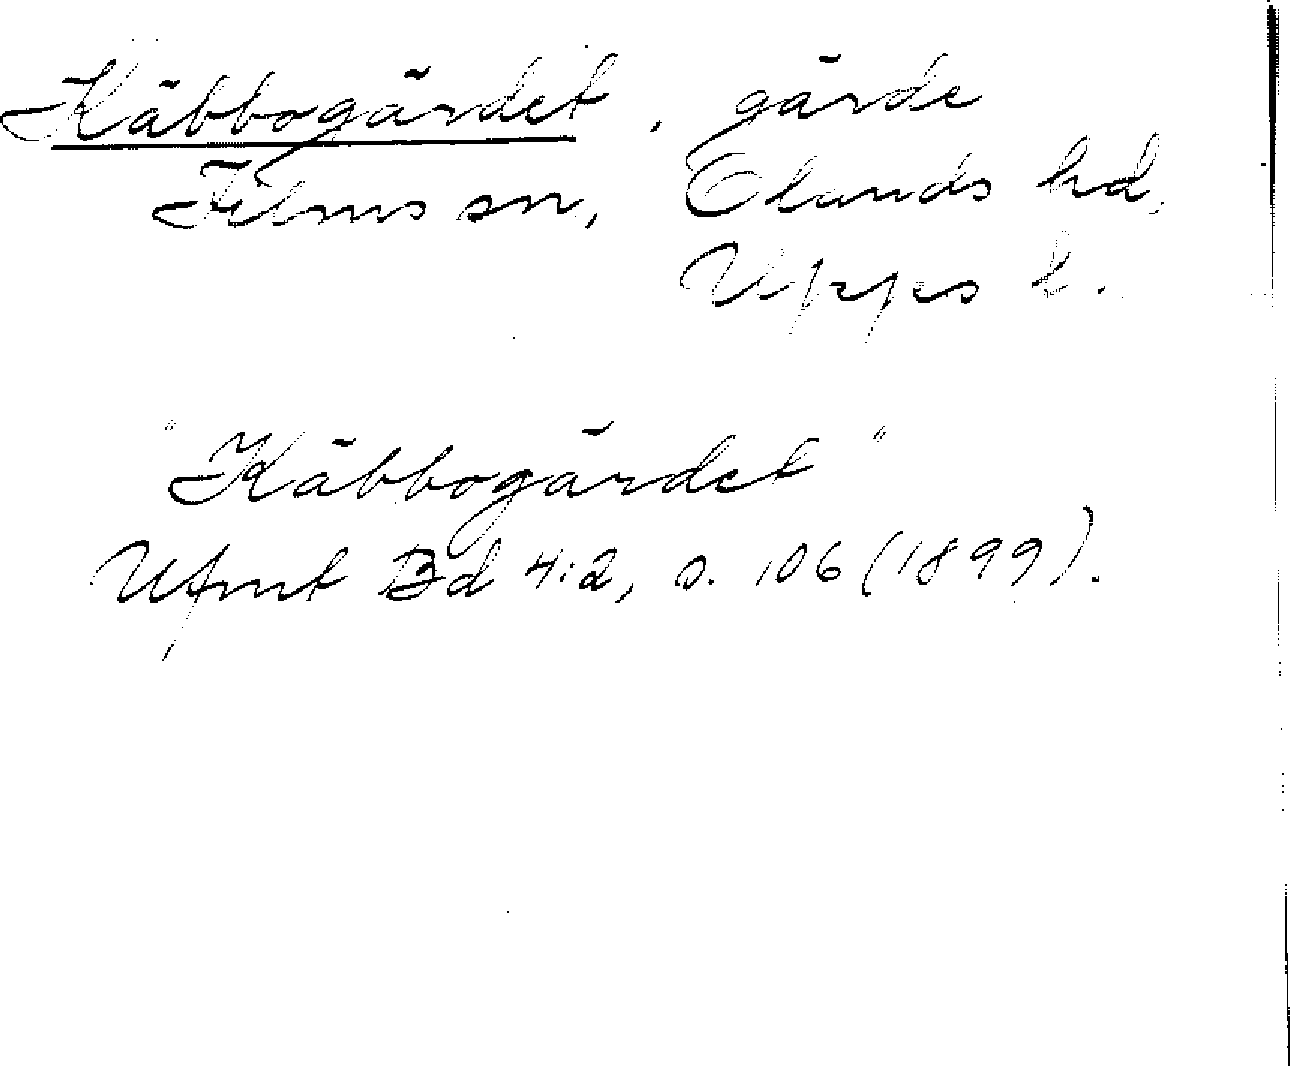 Käbbogärdet, gärde
Films sn, Olands hd,
Upps l.
"Käbbogärdet"
Ufmt Bd 4:2, s. 106 (1899).